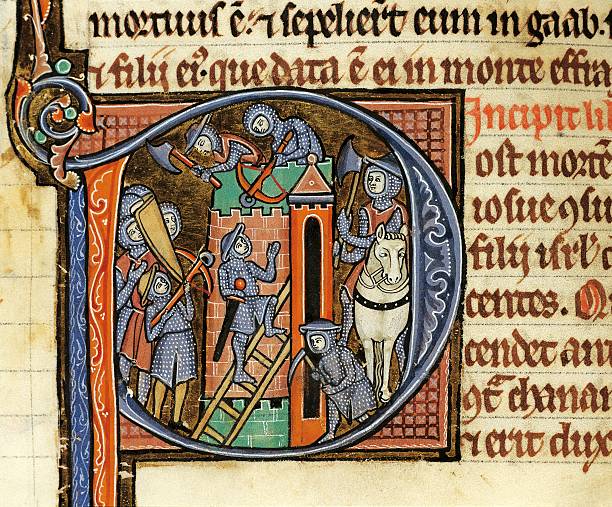 mortuus ē. ⁊ sepeliert̄ eum in gaab.
⁊ filii ei᾽. que data ē ei in monte effra
Incipit li
ost mortē
iosue ꝯsu
filii isrl̄
centes.
cendet an
chanan
⁊ erit dux